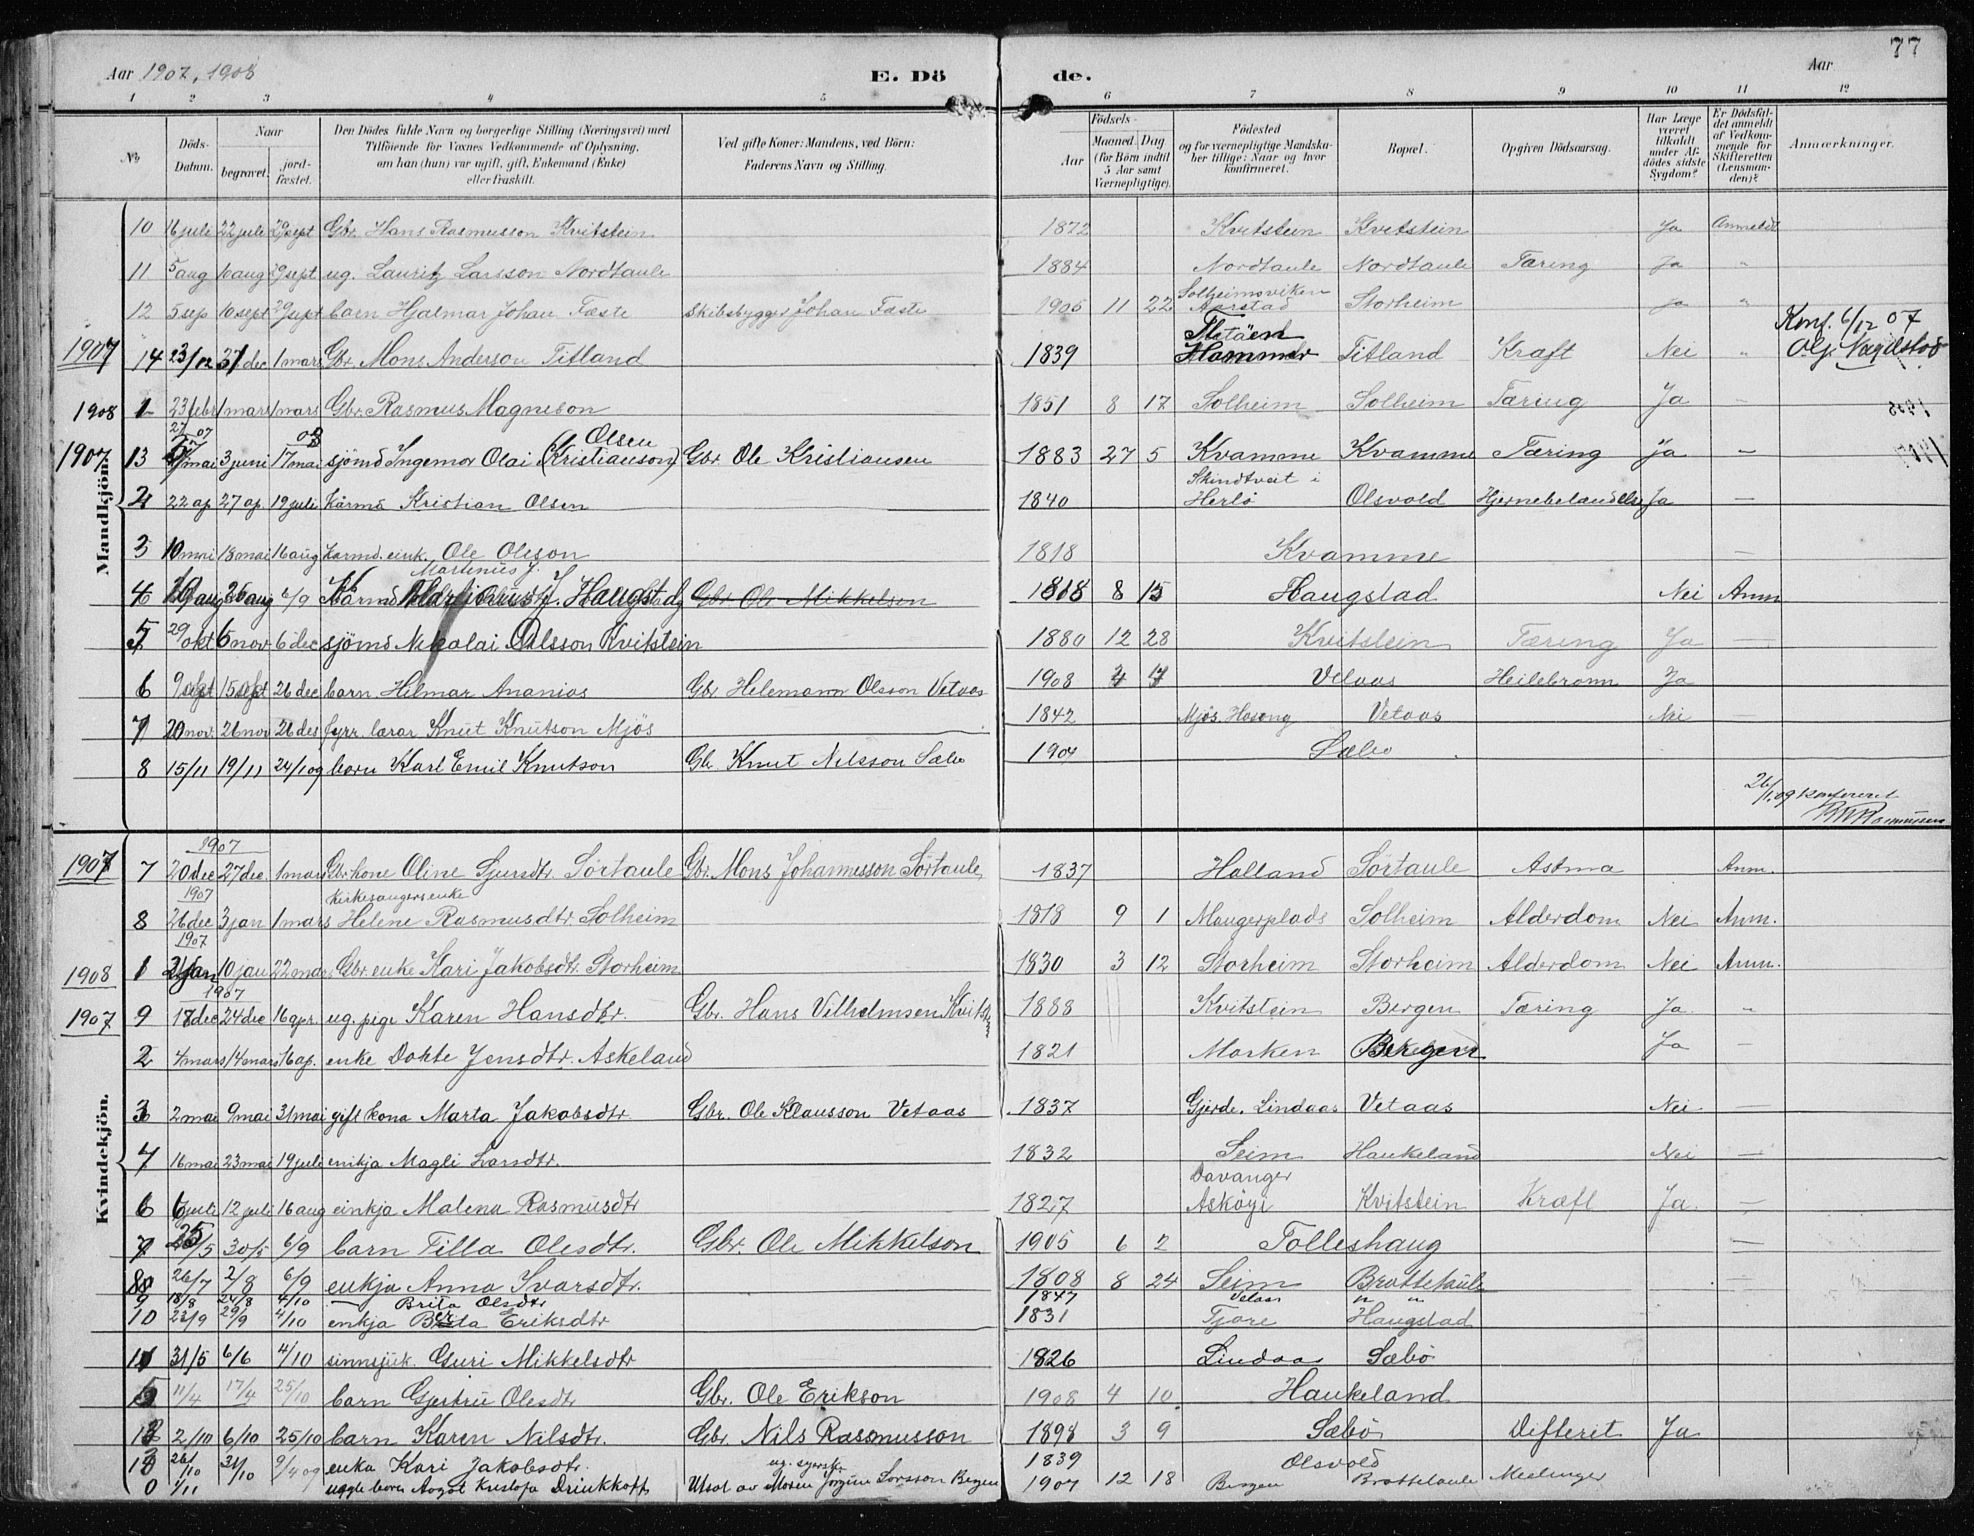 77
Aar 1907, 1908 E. Dö de. Aar
1 2 3 4 5 6 7 8 9 10 11 12
No Döds-Datum. Naar begravet. jord-fæstet. Den Dödes fulde Navn og borgerlige Stilling (Næringsvei) med Tilföiende for Voxnes Vedkommende af Oplysning, om han (hun) var ugift, gift, Enkemand (Enke) eller fraskilt. Ved gifte Koner: Mandens, ved Börn: Faderens Navn og Stilling. Födsels- Aar Maaned Dag (for Börn indtil 5 Aar samt Værnepligtige). Födested og for værnepligtige Mandskaber tillige: Naar og hvor konfirmeret. Bopæl. Opgiven Dödsaarsag. Har Læge været tilkaldt under Afdödes sidste Sygdom? Er Dödsfaldet anmeldt af Vedkommende for Skifteretten (Lensmanden)? Anmærkninger.
Mandkjön.
10 juli 22 juli 29 sept Gbr. Hans Rasmusson Kvitstein 1872 Kvitstein Kvitstein Ja Anmeldt
11 5 aug 10 aug 29 sept ug. Lauritz Larsson Nordtaule 1884 Nordtaule Nordtaule Tæring Ja "
12 5 sep 10 sept 29 sept barn Hjalmar Johan Fæste Skibsbygger Johan Fæste 1906 11 22 Solheimsviken Aarstad Storheim Ja "
Konf. 6/12 07
1907 14 23/12 31 dec 1 mars Gbr. Mons Anderson Titland 1839 Hammer Titland Kraft Nei "
1908 1 23 febr 1 mars 1 mars Gbr. Rasmus Magneson 1851 8 17 Solheim Solheim Tæring Ja -
1907 13 27 mai 3 juni 17 mai 08 sjömd Ingemor Olai Olsen (Kristianson) Gbr. Ole Kristiansen 1883 27 5 Kvamme Kvamme Tæring Ja -
2 22 ap 27 ap 19 juli kårmd Kristian Olsen 1840 Skindtveit i Herlö Olsvold Hjernebetændelse Ja -
3 10 mai 18 mai 16 aug karmd. eink. Ole Oleson 1818 Kvamme -
4 19 aug 26 aug 6/9 Kårmd Martinus J. Haugstad Gbr. Ole Mikkelsen 1818 8 15 Haugstad Nei Anm
5 29 okt 6 nov 6 dec sjömd Nikolai Olsson Kvitstein 1880 12 28 Kvitstein Tæring Ja -
6 9 sept 15 sept 26 dec barn Hilmar Ananias Gbr Helemann Olsson Vetaas 1908 4 7 Vetaas Heilebronn Ja
7 20 nov. 26 nov 26 des fyrr. lærar Knut Knutson Mjös 1842 Mjös, Hosang Vetaas Nei
8 15/11 19/11 24/1 09 born Karl Emil Knutson Gb. Knut Nilsson Sæbo 1904 Sæbo
26/1.09 konfereret
Rasmussen
Kvindekjön.
1907 7 20 dec 1907 27 dec. 1 mars Gbrkone Oline Sjursdtr Sörtaule Gbr. Mons Johannesson Sörtaule 1837 Holland Sörtaule Astma Anm.
8 26 dec 1907 3 jan 1 mars Kirkesangersenke Helene Rasmusdtr Solheim 1818 9 1 Mangerplads Solheim Alderdom Nei Anm.
1908 1 2 jan 10 jan 22 mars Gbr enke Kari Jakobsdtr. Storheim 1830 3 12 Storheim Storheim Alderdom Nei Anm.
1907 9 18 dec 1907 24 dec 16 apr. ug. pige Karen Hansdtr. Gbr. Hans Vilhelmsen Kvitst 1888 Kvitstein Bergen Tæring Ja "
2 4 mars 14 mars 16 ap. enke Dokte Jensdtr. Askeland 1821 Marken Ja -
3 2 mai 9 mai 31 mai gift kona Marta Jakobsdtr. Gbr. Ole Klausson Vetaas 1837 Gjerde. Lindaas Vetaas Nei -
4 16 mai 23 mai 19 juli enkja Magli Larsdtr. 1832 Seim Haukeland Nei -
6 6 juli 12 juli 16 aug einkja Malena Rasmusdtr 1827 Davanger Asköyi Kvitstein Kræft Ja -
7 25/5 30/5 6/9 barn Tilla Olesdtr. Gbr. Ole Mikkelson 1905 6 2 Tolleshaug -
8 26/7 2/8 6/9 enkja Anna Ivarsdtr. 1808 8 24 Seim Brottetaule -
9 18/8 24/8 4/10 Brita Olsdtr 1847 Vetaas " "
10 23/9 29/9 4/10 enkja Berta Eriksdtr 1831 Tjore Haugstad
11 31/5 6/6 4/10 sinnsjuk. Guri Mikkelsdtr 1826 Lindaas Sæbö
5 11/4 17/4 25/10 barn Gjertru Olesdtr Gbr. Ole Erikson 1908 4 10 Haukeland
12 2/10 6/10 25/10 barn Karen Nilsdtr. Gbr. Nils Rasmusson 1898 3 9 Sæbö Difterit Ja
13 26/10 31/10 9/4 09 enka Kari Jakobsdtr. 1839 Olsvold
0 1/11 uegte Aagot Kristofa Drinkkopf Utsat av Moren Jorgine Larsson Bergen 1907 12 18 Bergen Brottetaule